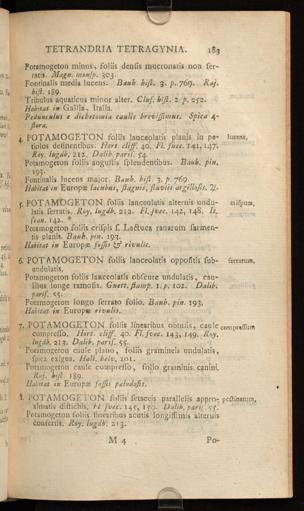 TETRANDRIA TETRAGYNIA. 183
Potamogeton minus, foliis densis mucronatis non ser-
ratis. Magn. monsp. 303.
Fontinalis media lucens. Bauh. hist. 3. p. 769. Raj.
hist. 189.
Tribulus aquaticus minor alter. Clus. hist. 2. p. 252.
Habitat in Gallia, Italia.
Pedunculus e dichotomia caulis brevissimus. Spica 4-
flora.
4. POTAMOGETON foliis lanceolatis planis in pe- lucens.
tiolos desinentibus. Hort. cliff. 40. Fl. suec. 141, 147.
Roy. lugdb. 212. Dalib. paris. 54.
Potamogeton foliis angustis splendentibus. Bauh. pin.
193.
Fontinalis lucens major. Bauh. hist. 3. p. 769.
Habitat in Europæ lacubus, stagnis, fluviis argillosis. ♃.
5. POTAMOGETON foliis lanceolatis alternis undu- crispum.
latis serratis. Roy. lugdb. 212. Fl. suec. 142, 148. It.
scan. 142. *
Potamogeton foliis crispis s. Lactuca ranarum Bauh. pin. 193.
Habitat in Europæ fossis & rivulis.
6. POTAMOGETON foliis lanceolatis oppositis sub- serratum.
undulatis.
Potamogeton foliis lanceolatis obscure undulatis, cau-
libus longe ramosis. Guett. stamp. 1. p. 102. Dalib.
paris. 55.
Potamogeton longo serrato folio. Bauh. pin. 193.
Habitat in Europæ rivulis.
7. POTAMOGETON foliis linearibus obtusis, caule compressum
compresso. Hort. cliff. 40. Fl. suec. 143, 149. Roy.
lugdb. 213. Dalib. paris. 55.
Potamogeton caule plano, foliis gramineis undulatis,
spica exigua. Hall. helv. 201.
Potamogeton caule compresso, folio graminis canini.
Raj. hist. 189.
Habitat in Europæ fossis paludosis.
8. POTAMOGETON foliis setaceis parallelis appro- pectinatum,
ximatis distichis. Fl. suec. 145, 150. Dalib. paris. 55.
Potamogeton foliis linearibus acutis longissimis alternis
confertis. Roy. lugdb. 213.
M 4 Po-